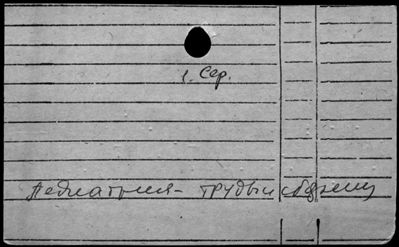 1. Сер.
Педиатрия - труды и